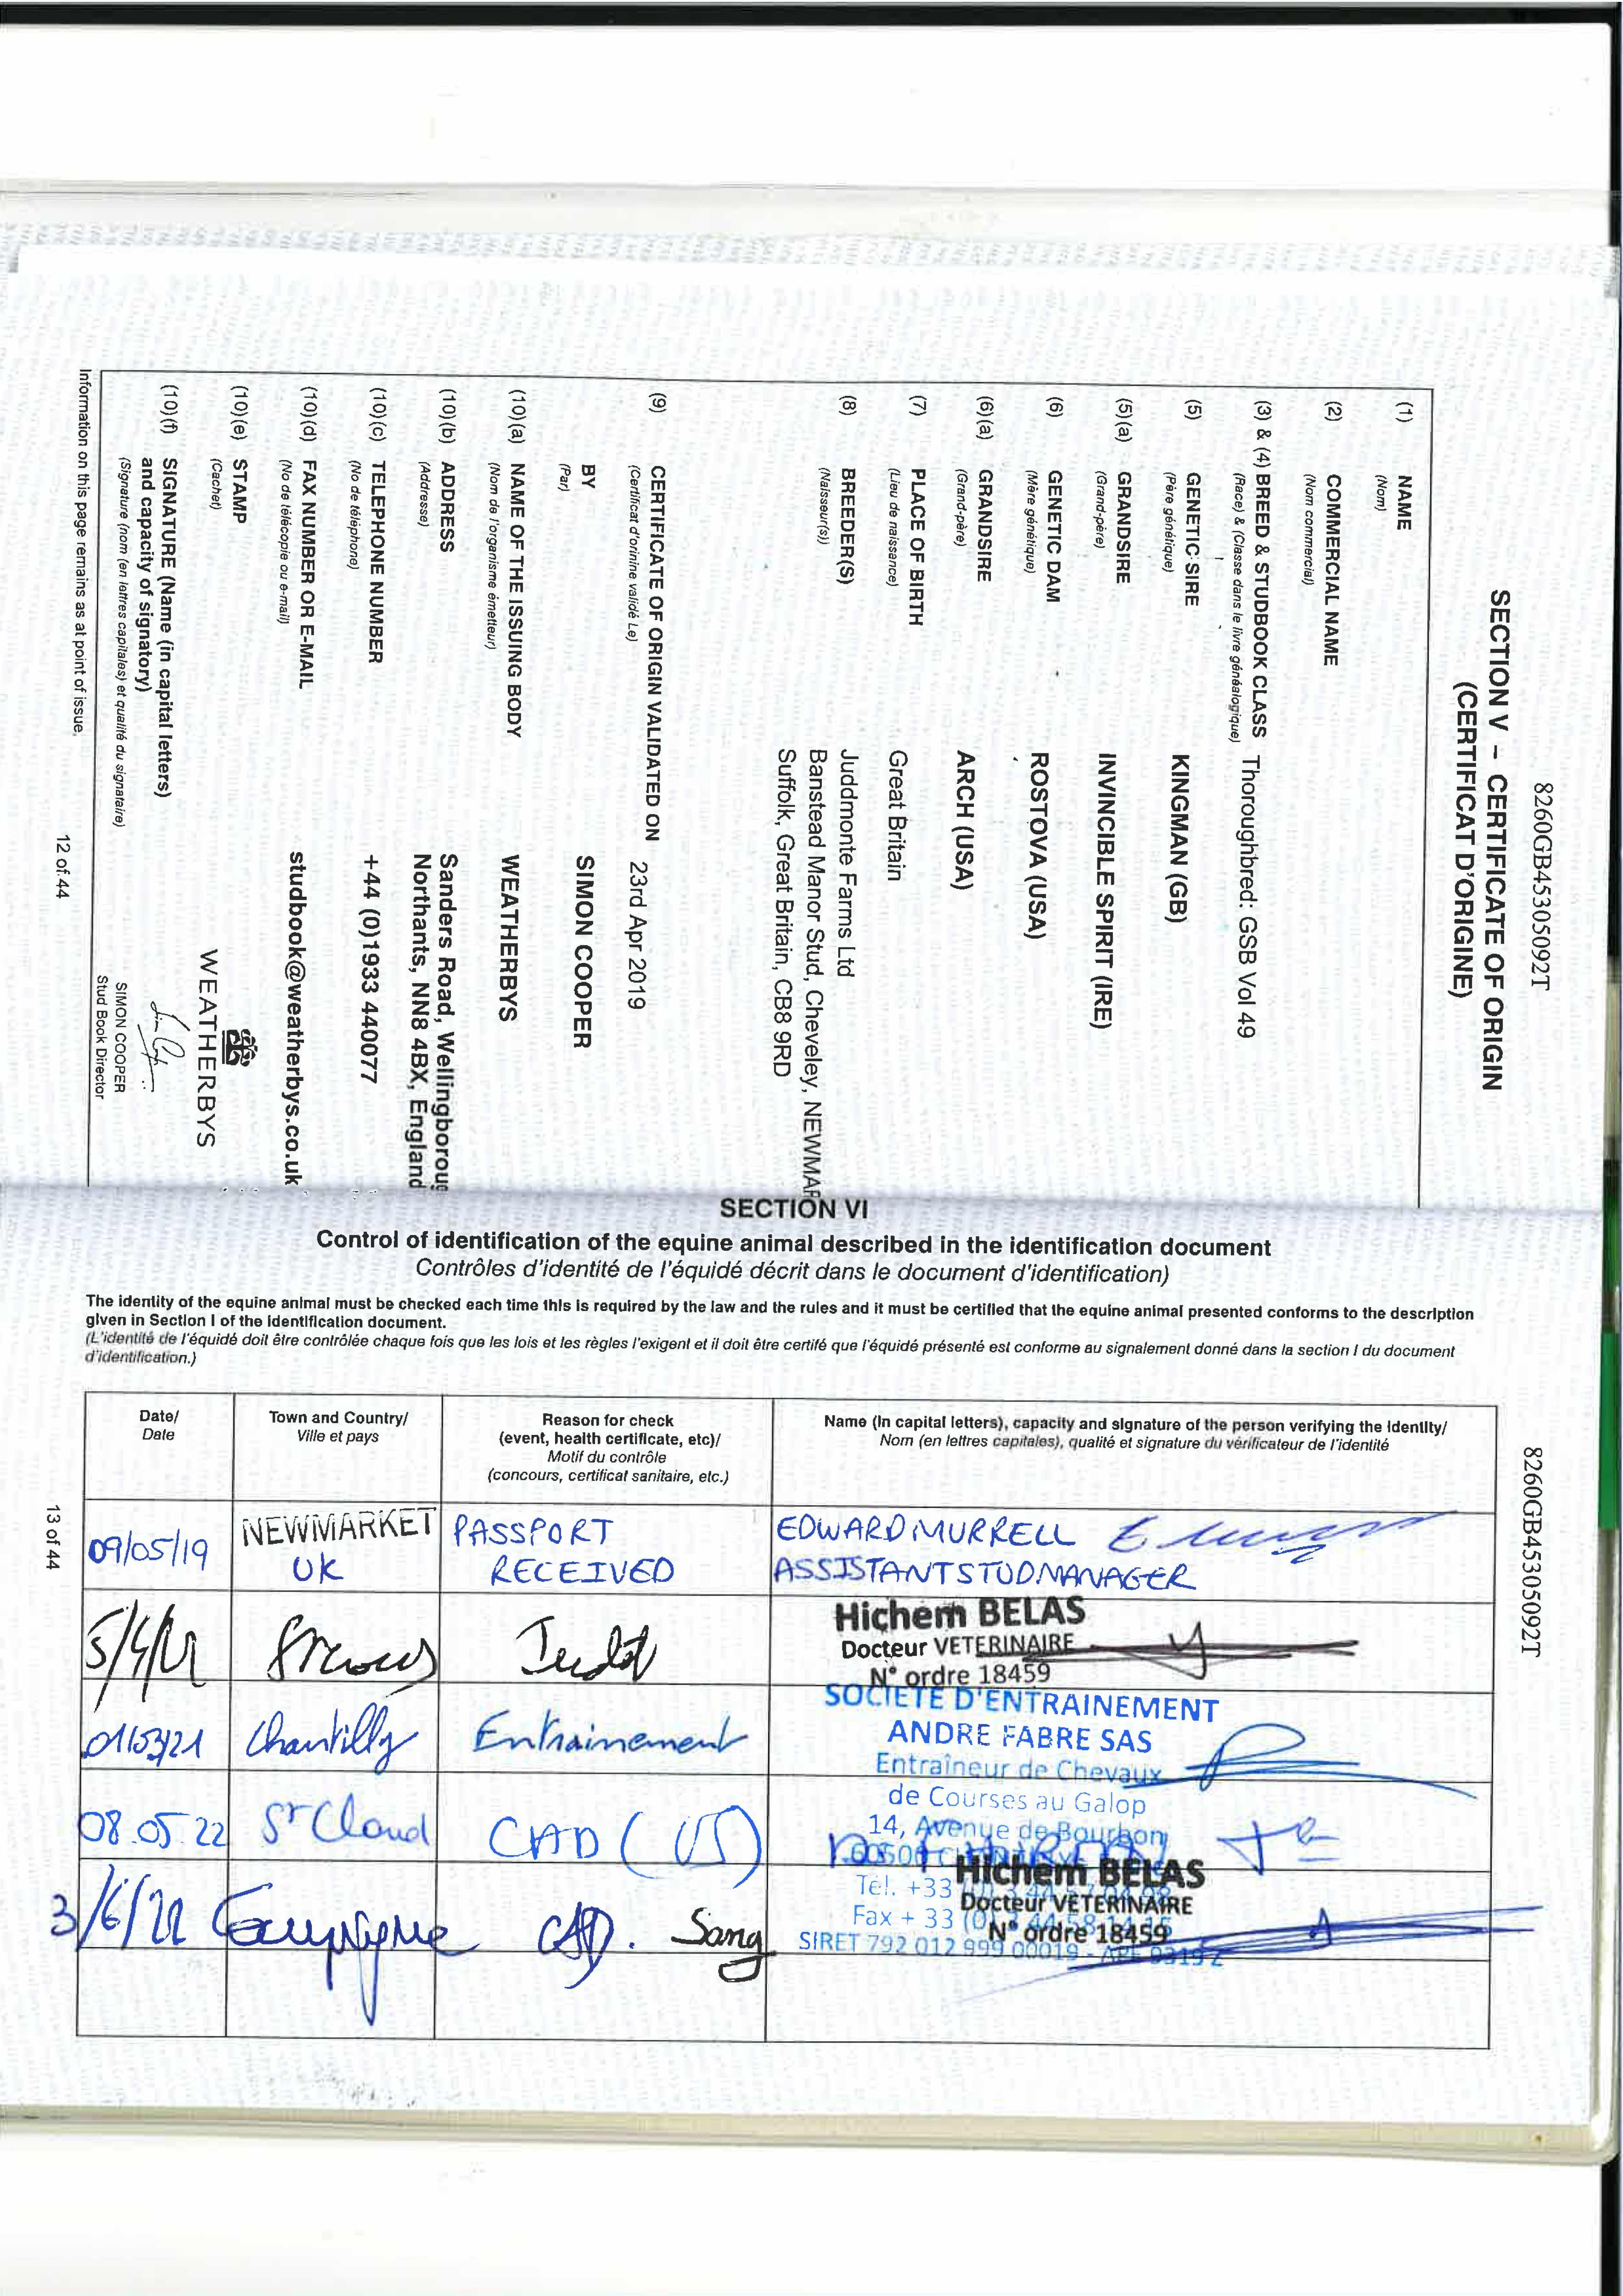 8260GB45305092T
SECTION V – CERTIFICATE OF ORIGIN
(CERTIFICAT D'ORIGINE)
(1) NAME
(Nom)
(2) COMMERCIAL NAME
(Nom commercial)
(3) & (4) BREED & STUDBOOK CLASS Thoroughbred: GSB Vol 49
(Race) & (Classe dans le livre généalogique)
(5) GENETIC SIRE KINGMAN (GB)
(Père génétique)
(5)(a) GRANDSIRE INVINCIBLE SPIRIT (IRE)
(Grand-père)
(6) GENETIC DAM ROSTOVA (USA)
(Mère génétique)
(6)(a) GRANDSIRE ARCH (USA)
(Grand-père)
(7) PLACE OF BIRTH Great Britain
(Lieu de naissance)
(8) BREEDER(S) Juddmonte Farms Ltd
(Naisseur(s)) Banstead Manor Stud, Cheveley, NEWMAR
Suffolk, Great Britain, CB8 9RD
(9) CERTIFICATE OF ORIGIN VALIDATED ON 23rd Apr 2019
(Certificat d'orinine validé Le)
BY SIMON COOPER
(Par)
(10)(a) NAME OF THE ISSUING BODY WEATHERBYS
(Nom de l'organisme émetteur)
(10)(b) ADDRESS Sanders Road, Wellingborou
(Addresse) Northants, NN8 4BX, England
(10)(c) TELEPHONE NUMBER +44 (0)1933 440077
(No de téléphone)
(10)(d) FAX NUMBER OR E-MAIL studbook@weatherbys.co.uk
(No de télécopie ou e-mail)
(10)(e) STAMP WEATHERBYS
(Cachet)
(10)(f) SIGNATURE (Name (in capital letters)
and capacity of signatory)
(Signature (nom (en lettres capitales) et qualité du signataire)
SIMON COOPER
Stud Book Director
Information on this page remains as at point of issue.
12 of 44
SECTION VI
Control of identification of the equine animal described in the identification document
Contrôles d'identité de l'équidé décrit dans le document d'identification)
The identity of the equine animal must be checked each time this is required by the law and the rules and it must be certified that the equine animal presented conforms to the description
given in Section I of the identification document.
(L'identité de l'équidé doit être contrôlée chaque fois que les lois et les règles l'exigent et il doit être certifé que l'équidé présenté est conforme au signalement donné dans la section I du document
d'identification.)
Date/
Date
Town and Country/
Ville et pays
Reason for check
(event, health certificate, etc)/
Motif du contrôle
(concours, certificat sanitaire, etc.)
Name (in capital letters), capacity and signature of the person verifying the identity/
Nom (en lettres capitales), qualité et signature du vérificateur de l'identité
8260GB45305092T
13 of 44
09/05/19 NEWMARKET UK PASSPORT RECEIVED EDWARD MURRELL
ASSISTANT STUD MANAGER
Hichem BELAS
Docteur VETERINAIRE
N° ordre 18459
01/03/21 Chantilly Entrainement
SOCIETE D'ENTRAINEMENT
ANDRE FABRE SAS
Entraîneur de Chevaux
de Courses au Galop
14, Avenue de Bourbon
08.05.22 St Cloud CAD (US)
Tél. +33
Fax + 33 (0)
SIRET 792 012 999 00019
3/6/22 Compiègne CAD. Sang
Hichem BELAS
Docteur VETERINAIRE
N° ordre 18459